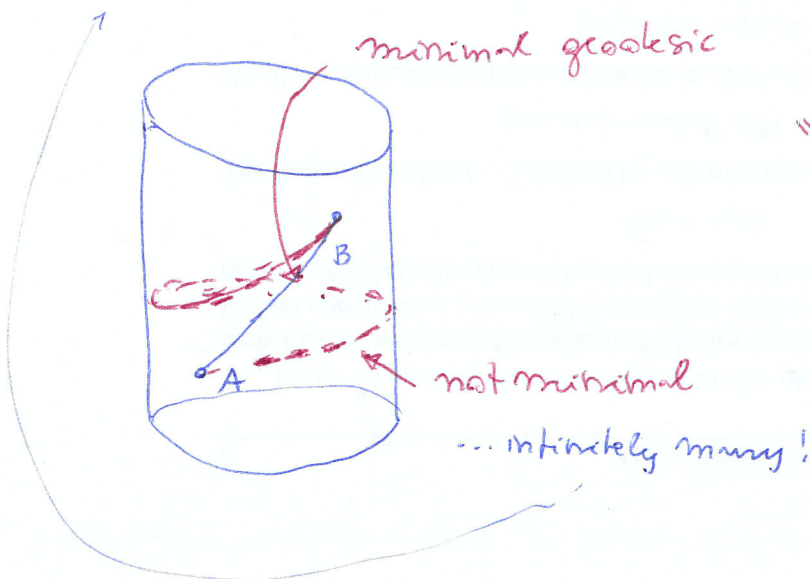 minimal geodesic
B
A
not minimal
... infinitely many!